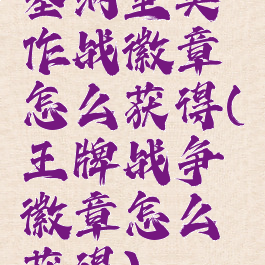 圣两空英
作战徽章
怎么获得(
王牌战争
徽章怎么
获得)